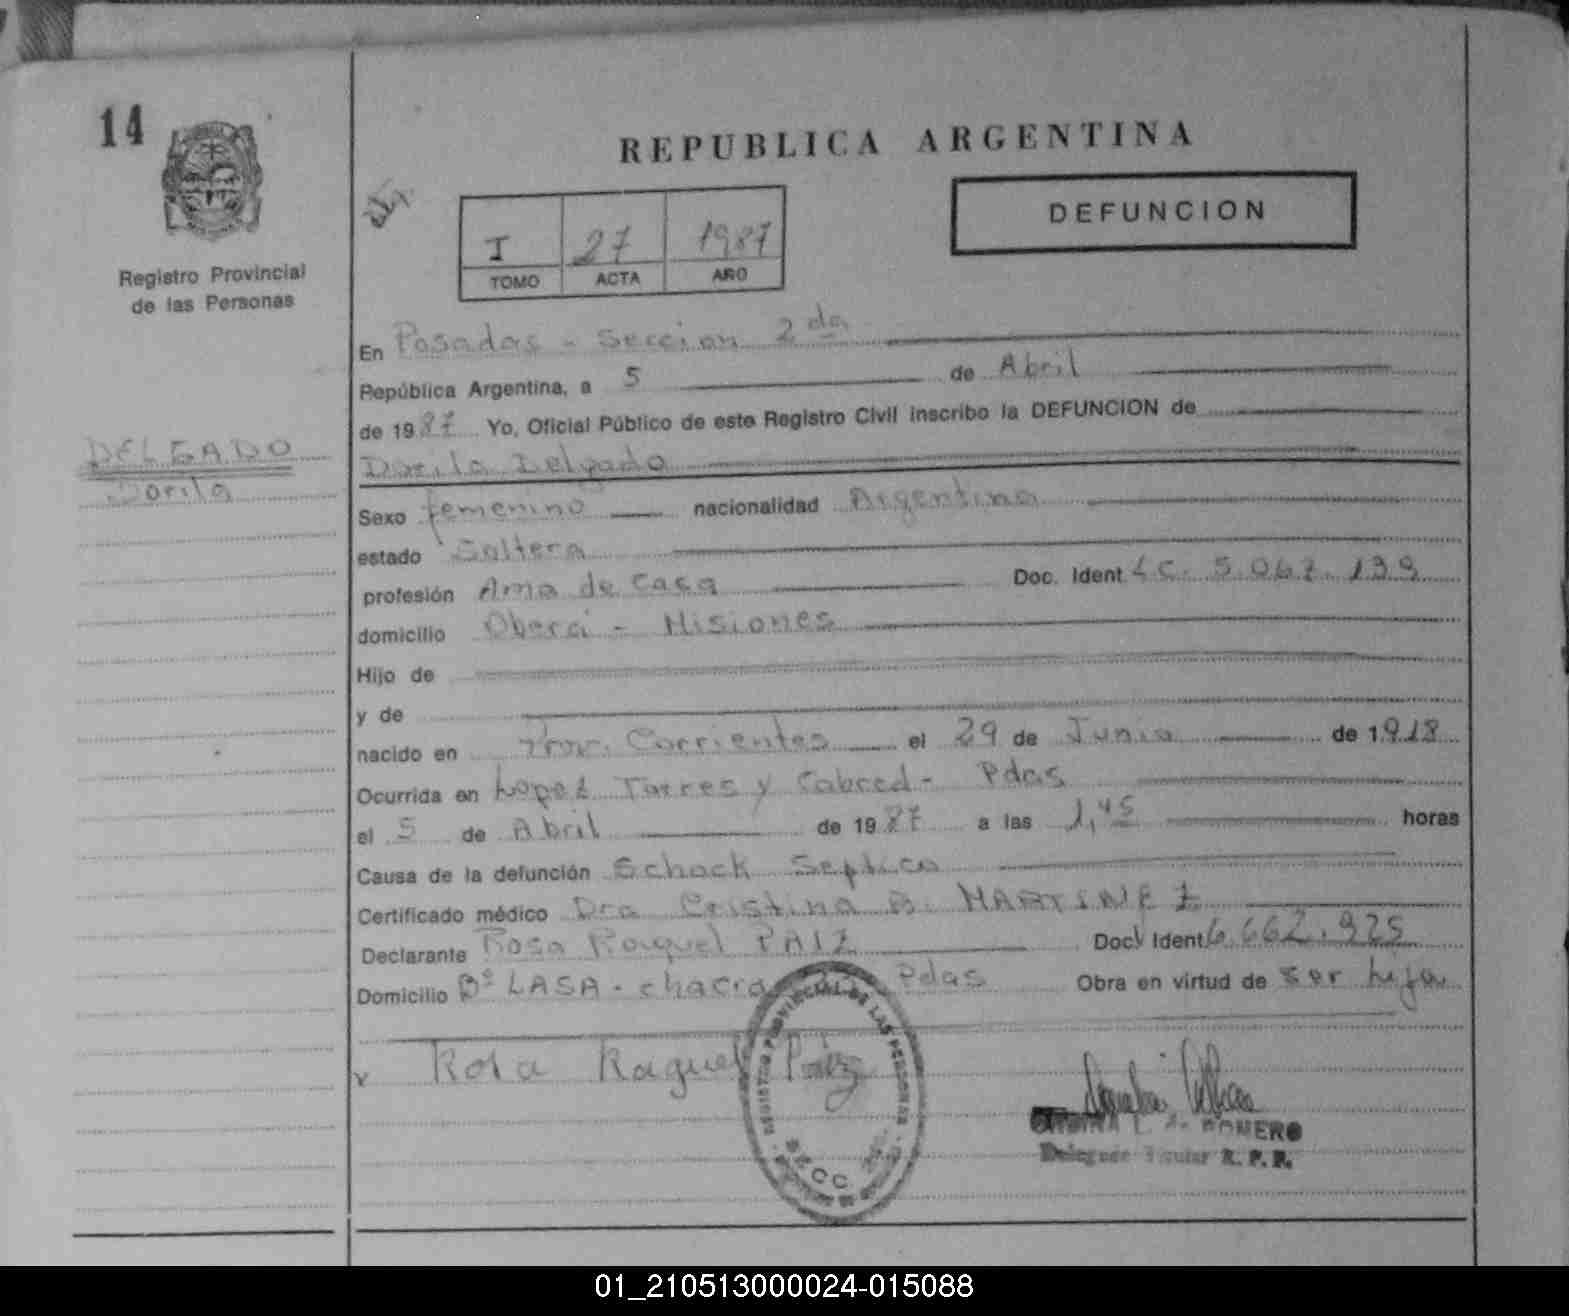 14
Registro Provincial
de las Personas
DELGADO
Dorila
REPUBLICA ARGENTINA
DEFUNCION
I 27 1987
TOMO ACTA AÑO
En Posadas - Seccion 2da
República Argentina, a 5 de Abril
de 1987 Yo, Oficial Público de este Registro Civil inscribo la DEFUNCION de
Dorila Delgado
Sexo femenino nacionalidad Argentina
estado Soltera
profesión Ama de Casa Doc. Ident. LC. 5.067.139
domicilio Oberá - Misiones
Hijo de
y de
nacido en Prov. Corrientes el 29 de Junio de 1918
Ocurrida en Lopez Torres y Cabred - Pdas
el 5 de Abril de 1987 a las 1,45 horas
Causa de la defunción Schock Septico
Certificado médico Dra Cristina B. MARTINEZ
Declarante Rosa Raquel PAIZ Doc. Ident. 6.662.925
Domicilio Bº LASA - chacra Pdas Obra en virtud de ser hija
Rosa Raquel Paiz
REGISTRO PROVINCIAL DE LAS PERSONAS
SECC
ROMERO
Delegado Titular R. P. P.
01_210513000024-015088